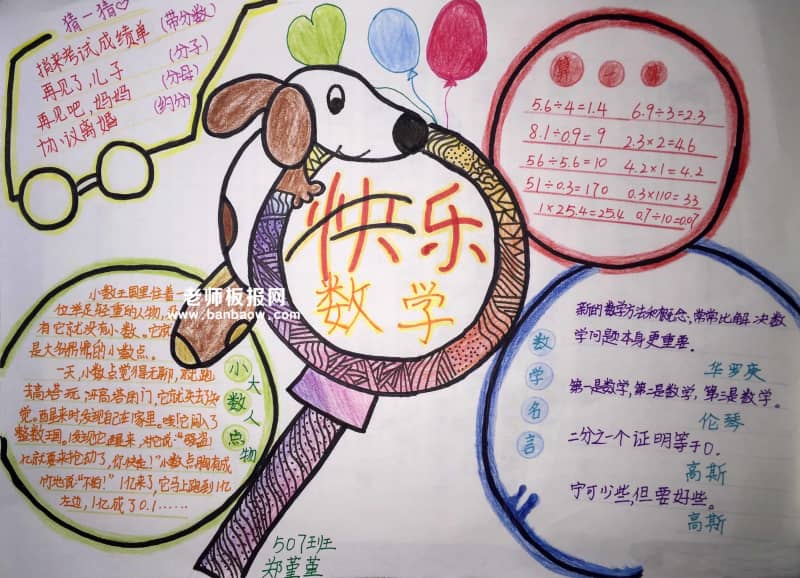 猜一猜
捎来考试成绩单 (带分数)
再见了,儿子 (分子)
再见吧,妈妈 (分母)
协议离婚 (约分)
快乐
数学
算一算
5.6÷4=1.4 6.9÷3=2.3
8.1÷0.9=9 2.3×2=4.6
56÷5.6=10 4.2×1=4.2
51÷0.3=170 0.3×110=33
1×25.4=25.4 0.7÷10=0.07
老师板报网
www.banbaow.com
小数王国里住着一
位举足轻重的人物,
有它就没有小数。它就
是大名鼎鼎的小数点。
一天,小数点觉得无聊,就跑
去高塔玩
整数王国。1发现它
亿就要来抢动了,你快走!"小数点胸有成
竹地说:"不怕!"1亿来了,它马上跑到1亿
左边,1亿成了0.1……
小数点
大人物
数学名言
新的数学方法和概念,常常比解决数
学问题本身更重要。
华罗庚
第一是数学,第二是数学,第三是数学。
伦琴
二分之一个证明等于0.
高斯
宁可少些,但要好些。
高斯
507班
郑堇堇